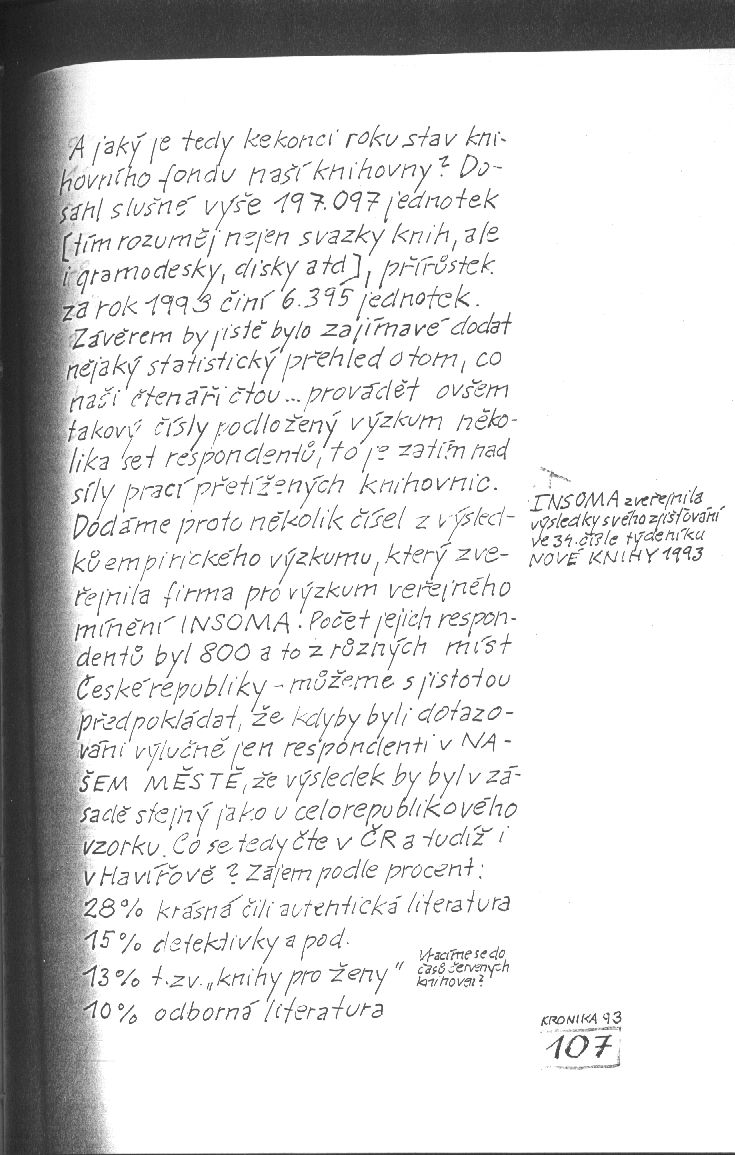 A jaký je tedy kekonci roku stav kni-
hovního fondu naší knihovny? Do-
sáhl slušné výše 197.097 jednotek
[tím rozuměj nejen svazky knih, ale
i gramodesky, disky atd], přírůstek
za rok 1993 činí 6.395 jednotek.
Závěrem by jistě bylo zajímavé dodat
nějaký statistický přehled o tom, co
naši čtenáři čtou... provádět ovšem
takový čísly podložený výzkum něko-
lika set respondentů, to je zatím nad
síly prací přetížených knihovnic.
Dodáme proto několik čísel z výsled-
ků empirického výzkumu, který zve-
řejnila firma pro výzkum veřejného
mínění INSOMA. Počet jejich respon-
dentů byl 800 a to z různých míst
České republiky - můžeme s jistotou
předpokládat, že kdyby byli dotazo-
váni výlučně jen respondenti v NA-
ŠEM MĚSTĚ, že výsledek by byl v zá-
sadě stejný jako u celorepublikového
vzorku. Co se tedy čte v ČR a tudíž i
v Havířově? Zájem podle procent:
28% krásná čili autentická literatura
15% detektivky a pod.
13% t.zv. „knihy pro ženy"
10% odborná literatura
INSOMA zveřejnila
výsledky svého zjišťování
ve 34. čísle týdeníku
NOVÉ KNIHY 1993
Vracíme se do
časů červených
knihoven?
KRONIKA 93
107